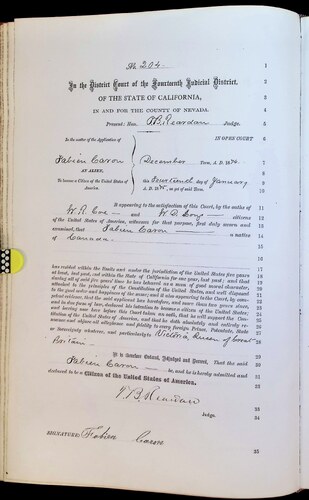 No 204
1
In the District Court of the Fourteenth Judicial District,
2
OF THE STATE OF CALIFORNIA,
3
IN AND FOR THE COUNTY OF NEVADA.
4
Present: Hon. T.B. Reardan Judge.
5
In the matter of the Application of
IN OPEN COURT
6
Fabien Caron
AN ALIEN,
To become a Citizen of the United States of America.
December Term, A. D. 1874
7
8
this day of January
9
A. D. 1875, as yet of said Term.
10
11
It appearing to the satisfaction of this Court, by the oaths of
12
W. R. Coe — and W. D. Long — citizens
13
of the United States of America, witnesses for that purpose, first duly sworn and
14
examined, that Fabien Caron — a native
15
of Canada.
16
17
has resided within the limits and under the jurisdiction of the United States five years
18
at least, last past, and within the State of California for one year, last past; and that
19
during all of said five years' time he has behaved as a man of good moral character,
20
attached to the principles of the Constitution of the United States, and well disposed
21
to the good order and happiness of the same; and it also appearing to the Court, by competent evidence, that the said applicant has heretofore, and more than two years since,
22
and in due form of law, declared his intention to become a citizen of the United States;
23
and having now here before this Court taken an oath, that he will support the Constitution of the United States of America, and that he doth absolutely and entirely renounce and abjure all allegiance and fidelity to every foreign Prince, Potentate, State
24
25
26
or Sovereignty whatever, and particularly to Victoria Queen of Great
27
28
Britain —
29
It is therefore Ordered, Adjudged and Decreed, That the said
30
Fabien Caron — be, and he is hereby admitted and
31
declared to be a Citizen of the United States of America.
32
T. B. Reardan
33
Judge.
34
SIGNATURE: Fabien Caron
35